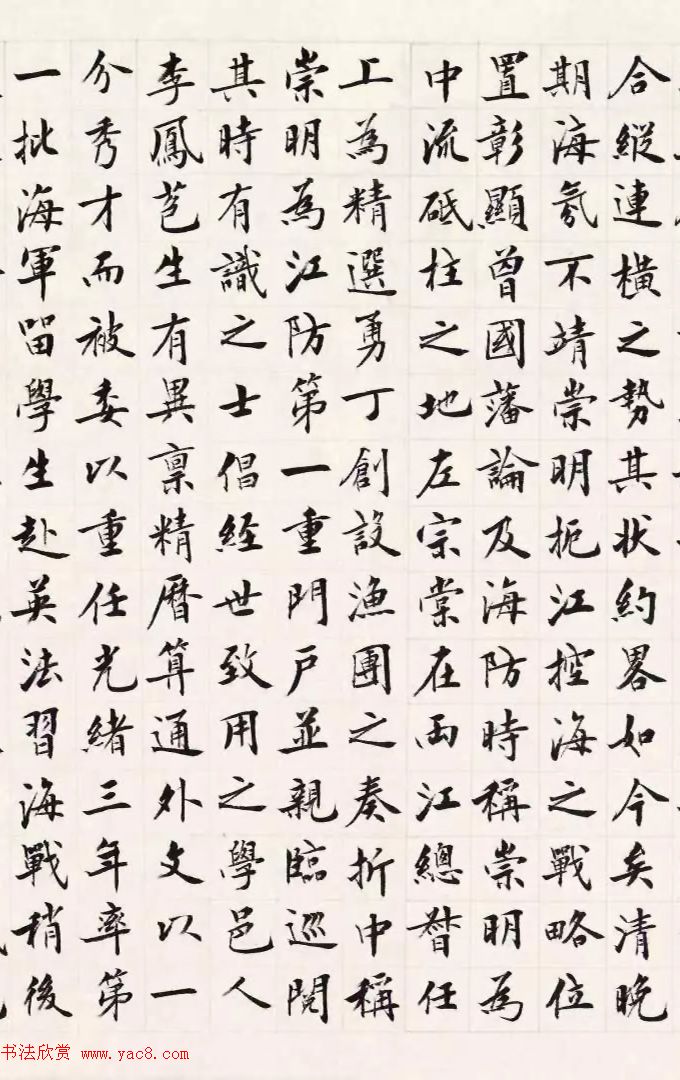 合縱連橫之勢其状約畧如今矣清晚
期海氛不靖崇明扼江控海之戰略位
置彰顯曾國藩論及海防時稱崇明為
中流砥柱之地左宗棠在两江總督任
上為精選勇丁創設漁團之奏折中稱
崇明為江防第一重門戶並親臨巡閱
其時有識之士倡經世致用之學邑人
李鳳苞生有異禀精曆算通外文以一
介秀才而被委以重任光緒三年率第
一批海軍留學生赴英法習海戰稍後
书法欣赏 www.yac8.com